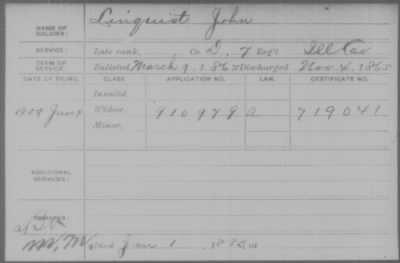 NAME OF SOLDIER: Linquist John
SERVICE: Late rank, Co. D, 7 Reg't Ill Cav
TERM OF SERVICE: Enlisted March 9, 186 Discharged Nov. 4, 1865
DATE OF FILING. CLASS. APPLICATION NO. LAW. CERTIFICATE NO.
Invalid,
1909 June 9 Widow, 910979 a 719041
Minor,
ADDITIONAL SERVICES:
REMARKS:
M, M died 1